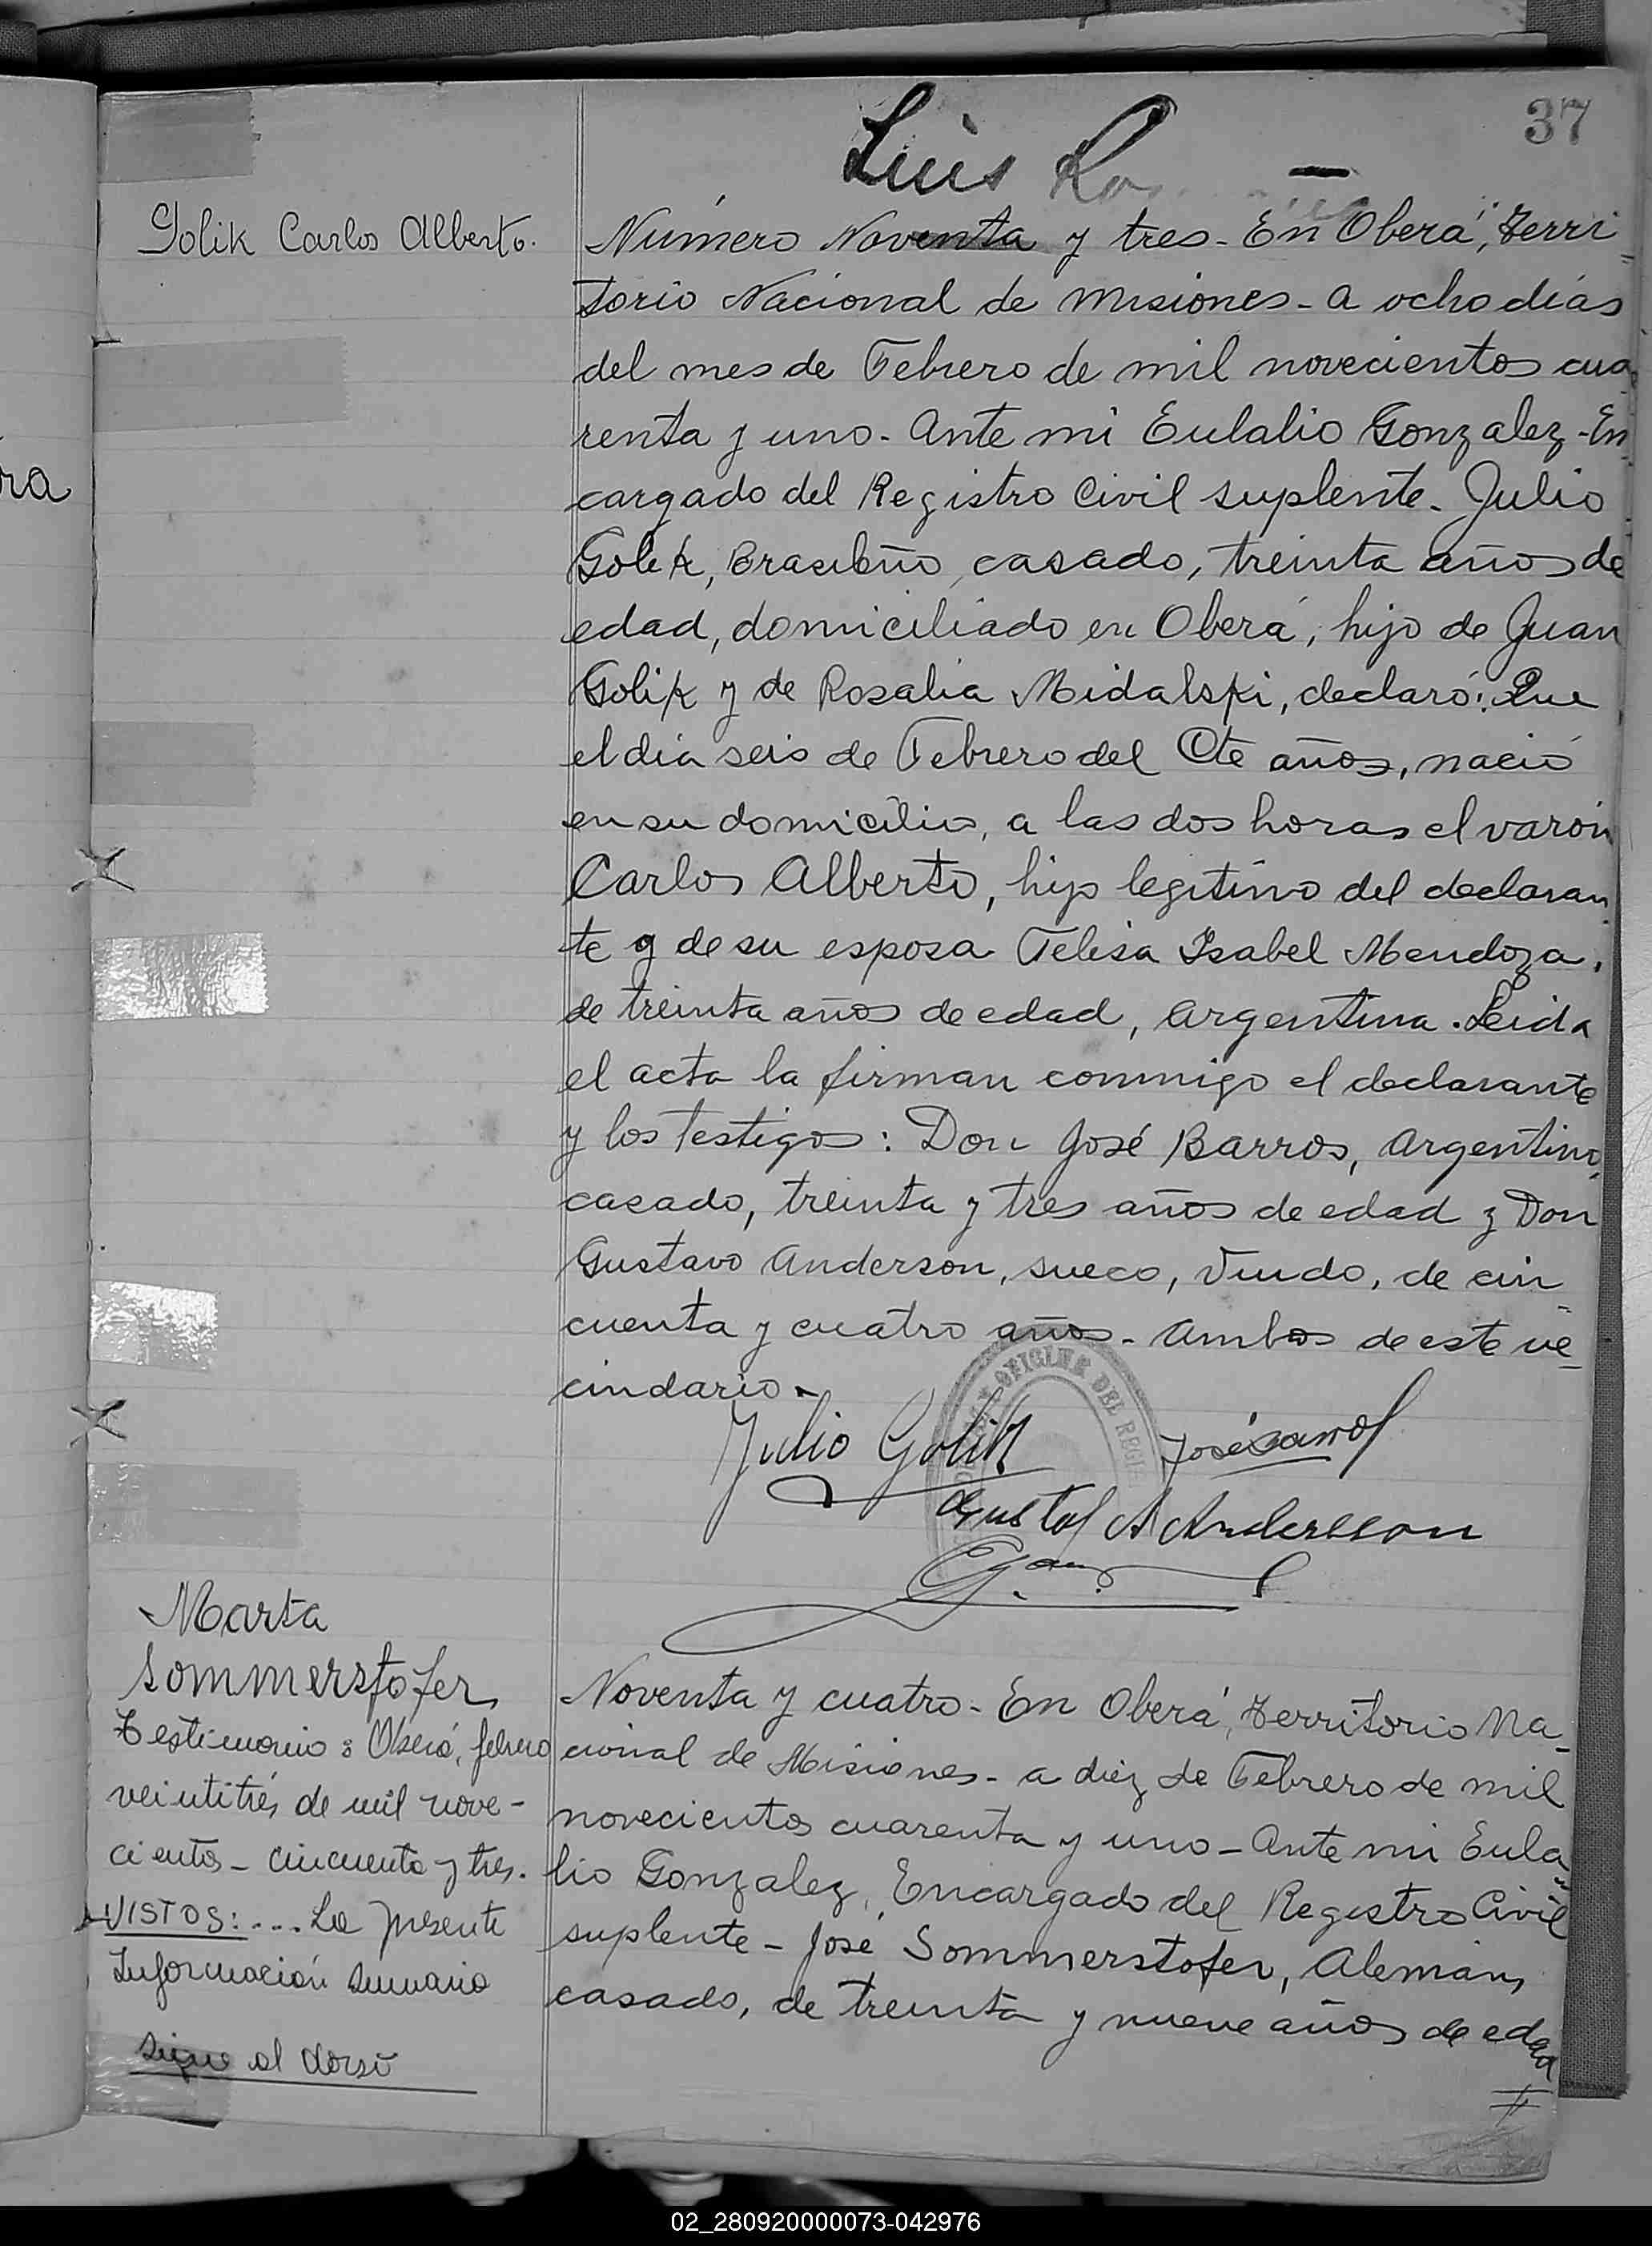 37
Luis
Golik Carlos Alberto.
Número Noventa y tres - En Oberá, Terri
torio Nacional de Misiones - a ocho días
del mes de Febrero de mil novecientos cua
renta y uno - Ante mi Eulalio Gonzalez - En
cargado del Registro Civil suplente. Julio
Golik, Brasileño, casado, treinta años de
edad, domiciliado en Oberá, hijo de Juan
Golik y de Rosalia Midalski, declaró: Que
el día seis de Febrero del Cte años, nació
en su domicilio, a las dos horas el varón
Carlos Alberto, hijo legítimo del declaran
te y de su esposa Felisa Isabel Mendoza,
de treinta años de edad, Argentina. Leida
el acta la firman conmigo el declarante
y los Testigos: Don José Barros, Argentino,
casado, treinta y tres años de edad y Don
Gustavo Anderson, sueco, Viudo, de cin
cuenta y cuatro años - Ambos de este ve
cindario -
OFICINA DEL REGI
Julio Golik José Barros
Gustaf A Andersson
Marta
Sommerstofer
Testimonio: Oberá, febrero
veintitrés de mil nove-
cientos - cincuenta y tres.
VISTOS: .... La presente
Información Sumaria
Sigue al dorso
Noventa y cuatro - En Oberá, Territorio Na
cional de Misiones - a diez de Febrero de mil
novecientos cuarenta y uno - Ante mi Eula
lio Gonzalez, Encargado del Registro Civil
suplente - José Sommerstofer, Alemán,
casado, de treinta y nueve años de edad
02_280920000073-042976